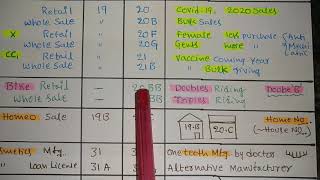 Retail 19 20 Covid-19, 2020 Sales
Whole Sale 20B Bulk Sales
X Retail 20F Females less purchase
Whole Sale 20G Gents more "
CC1 Retail 21 Vaccine coming Year
Whole Sale 21B " Bulk giving
Bike Retail — 20BB Doubles Riding Double B
Whole Sale — BB Triples Riding
Homeo Sale 19 19-B 20-C Home No.
Mfg. 31 One teeth Mfg. by doctor
" Loan License 31A Alternative Manufacturer